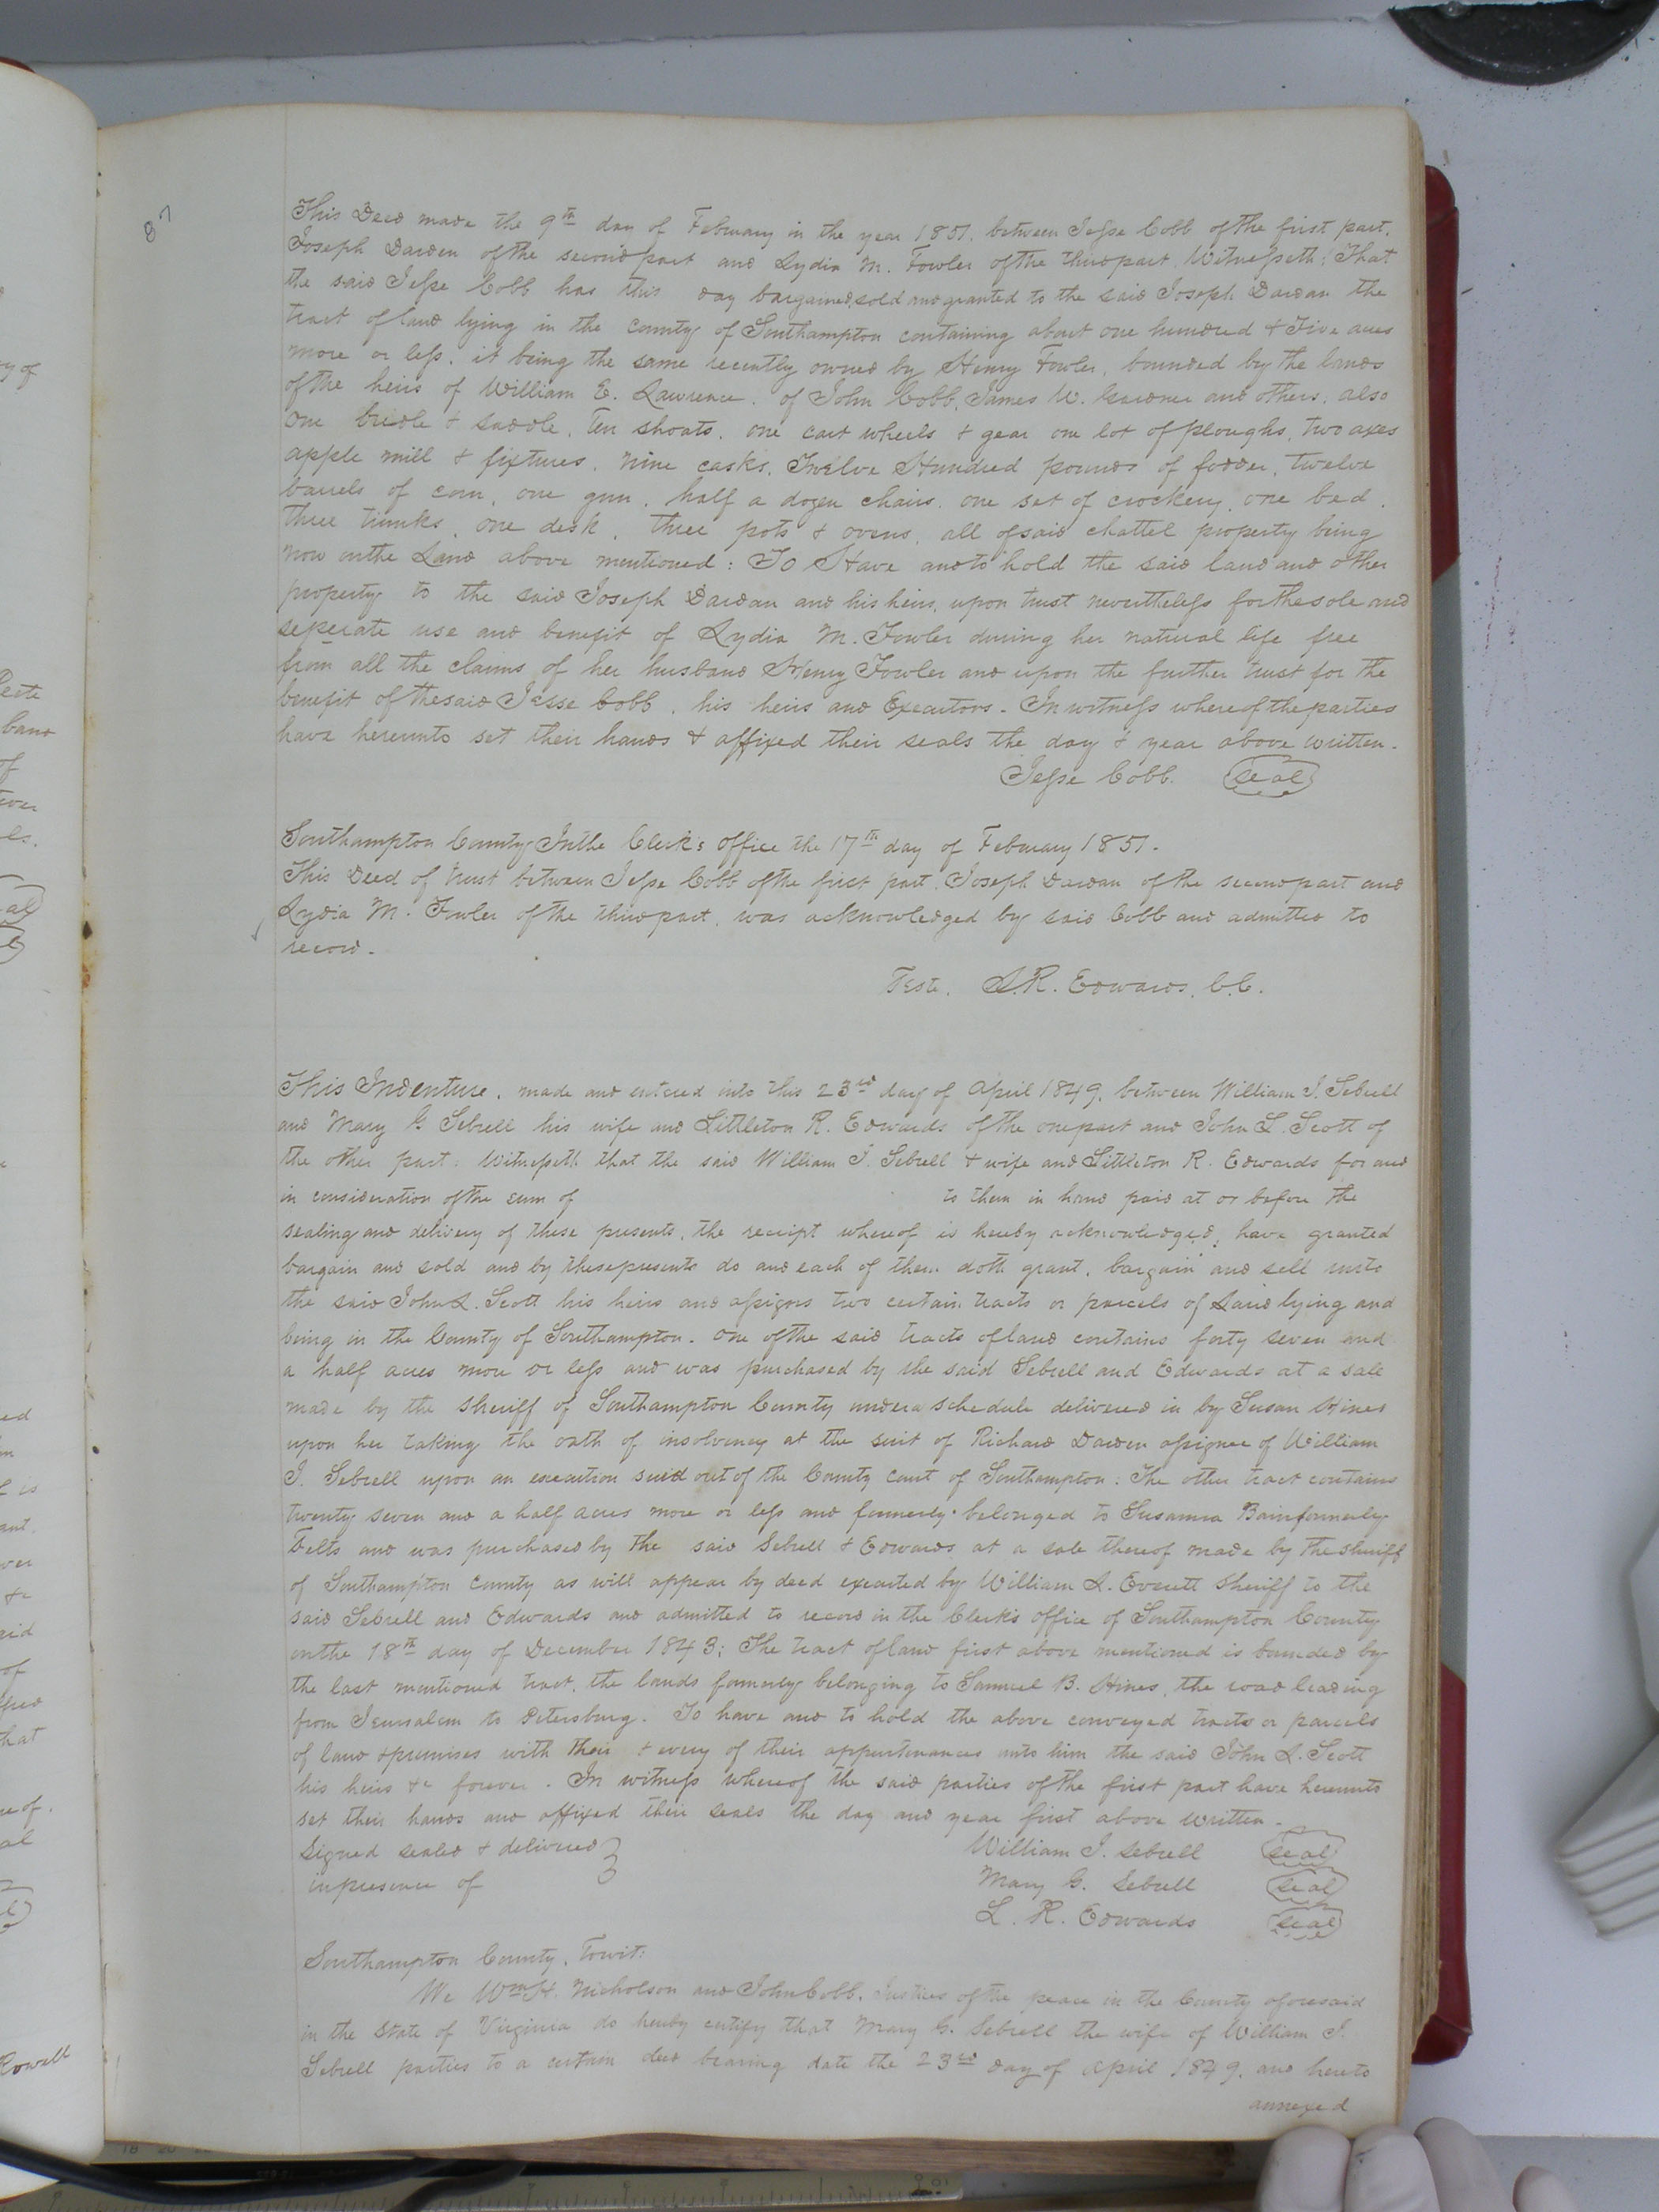 87
This Deed made the 9th day of February in the year 1851, between Jesse Cobb of the first part,
Joseph Darden of the second part and Lydia M. Fowler of the third part Witnesseth: That
the said Jesse Cobb has this day bargained, sold and granted to the said Joseph Dardan the
tract of land lying in the County of Southampton containing about one hundred & Five acres
more or less, it being the same recently owned by Henry Fowler, bounded by the lands
of the heirs of William E. Lawrence, of John Cobb, James W. Gardner and others, also
one bridle & saddle, Ten shoats, one cart wheels & gear one lot of ploughs, two axes
apple mill & fixtures, nine casks, Twelve Hundred pounds of fodder, twelve
barrels of corn, one gun, half a dozen chairs, one set of crockery, one bed,
three trunks, one desk, three pots & ovens, all of said chattel property being
now on the Land above mentioned: To Have and to hold the said land and other
property to the said Joseph Dardan and his heirs, upon trust nevertheless for the sole and
seperate use and benefit of Lydia M. Fowler during her natural life free
from all the claims of her husband Henry Fowler and upon the further trust for the
benefit of the said Jesse Cobb, his heirs and Executors. In witness whereof the parties
have hereunto set their hands & affixed their seals the day & year above written.
Jesse Cobb. (seal)
Southampton County In the Clerk's office the 17th day of February 1851.
This Deed of trust between Jesse Cobb of the first part, Joseph Dardan of the second part and
Lydia M. Fowler of the third part, was acknowledged by said Cobb and admitted to
record.
Teste. L.R. Edwards, C.C.
This Indenture, made and entered into this 23rd day of April 1849, between William J. Sebrell
and Mary G Sebrell his wife and Littleton R. Edwards of the one part and John L. Scott of
the other part: Witnesseth that the said William J. Sebrell & wife and Littleton R. Edwards for and
in consideration of the sum of to them in hand paid at or before the
sealing and delivery of these presents, the receipt whereof is hereby acknowledged, have granted
bargain and sold and by these presents do and each of them doth grant, bargain and sell unto
the said John L. Scott his heirs and assigns two certain tracts or parcels of Land lying and
being in the County of Southampton. One of the said tracts of land contains forty seven and
a half acres more or less and was purchased by the said Sebrell and Edwards at a sale
made by the Sheriff of Southampton County under a schedule delivered in by Susan Hines
upon her taking the oath of insolvency at the suit of Richard Darden assignee of William
J. Sebrell upon an execution sued out of the County court of Southampton. The other tract contains
twenty seven and a half acres more or less and formerly belonged to Susanna Bain formerly
Felts and was purchased by the said Sebrell & Edwards at a sale thereof made by the sheriff
of Southampton County as will appear by deed executed by William L. Everett Sheriff to the
said Sebrell and Edwards and admitted to record in the Clerk's office of Southampton County
on the 18th day of December 1843; The tract of land first above mentioned is bounded by
the last mentioned tract, the lands formerly belonging to Samuel B. Hines, the road leading
from Jerusalem to Petersburg. To have and to hold the above conveyed tracts or parcels
of land & premises with their & every of their appurtenances unto him the said John L. Scott
his heirs &c forever. In witness whereof the said parties of the first part have hereunto
set their hands and affixed their seals the day and year first above written.
Signed sealed & delivered William J. Sebrell (seal)
in presence of Mary G. Sebrell (seal)
L. R. Edwards (seal)
Southampton County, Towit:
We Wm H. Nicholson and John Cobb, Justices of the peace in the County aforesaid
in the State of Virginia do hereby certify that Mary G. Sebrell the wife of William J.
Sebrell parties to a certain deed bearing date the 23rd day of April 1849, and hereto
annexed